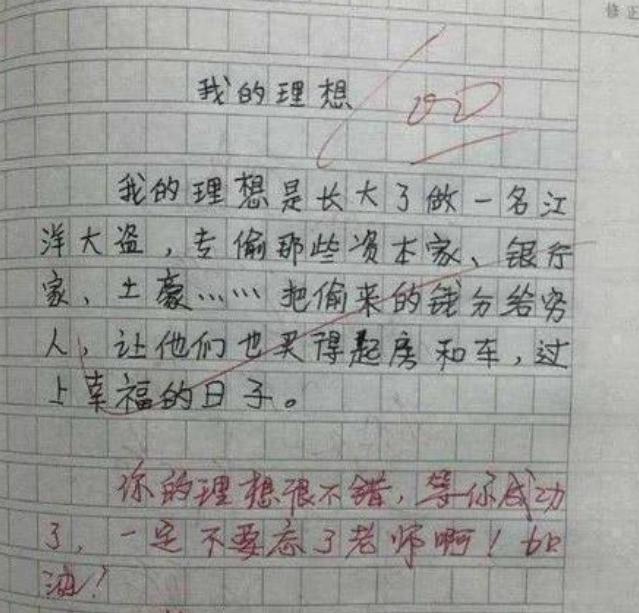 我的理想
100
我的理想是长大了做一名江
洋大盗，专偷那些资本家、银行
家、土豪……把偷来的钱分给穷
人，让他们也买得起房和车，过
上幸福的日子。
你的理想很不错，等你成功
了，一定不要忘了老师啊！加
油！